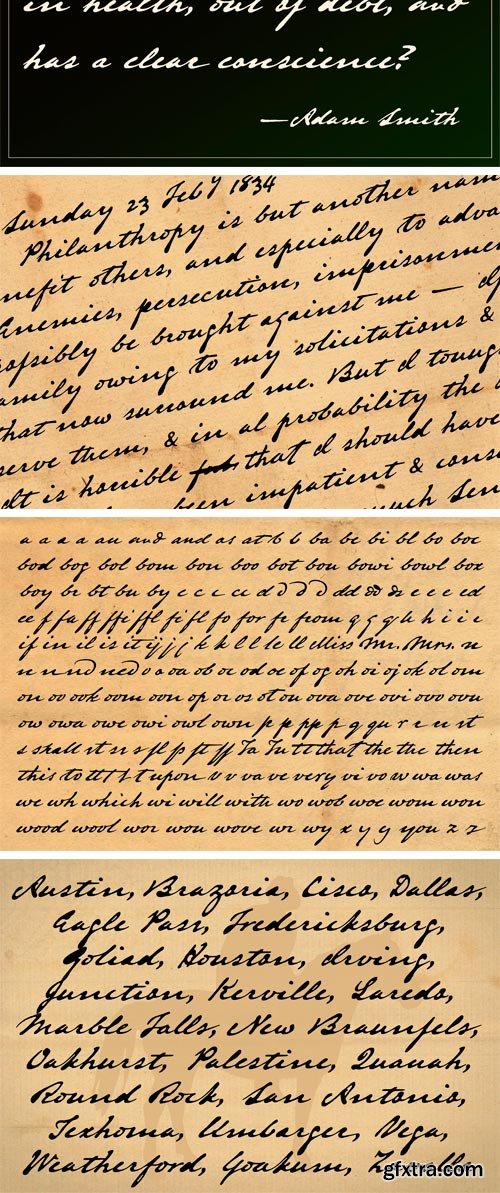 in health, out of debt, and
has a clear conscience?
—Adam Smith
Sunday 23 Feby 1834
Philanthropy is but another nam
nefit others, and especially to adva
Enemies, persecution, imprisonme
possibly be brought against me — of
amily owing to my solicitations &
that now surround me. But I
serve them, & in al probability the
It is horrible that I should have
been impatient & cons
much
a a a a au and and as at b b ba be bi bl bo boc
bod bog bol bom bon boo bot bou bowi bowl box
boy br bt bu by c c c c d d d d dd dd de e e e ed
ee f fa ff ffi ffl fi fl fo for fr from g g g h h i i i
if in il is it ij j j k k l l le ll Miss Mr. Mrs. n
n n nd ned o a oa ob oc od oe of og oh oi oj ok ol om
on oo ook oom oon op or os ot ou ova ove ovi ovo ovu
ow owa owe owi owl own p p pp p q qu r r u rt
s shall st ss s fl p ft ff Ta Tu tt that the the then
this to tt t t t upon v v va ve very vi vo w wa was
we wh which wi will with wo wob woe wom won
wood wool wor wou wove wr wy x y y you z z
Austin, Brazoria, Cisco, Dallas,
Eagle Pass, Fredericksburg,
Goliad, Houston, Irving,
Junction, Kerville, Laredo,
Marble Falls, New Braunfels,
Oakhurst, Palestine, Quanah,
Round Rock, San Antonio,
Texhoma, Umbarger, Vega,
Weatherford, Yoakum, Zavalla
gfxtra.com